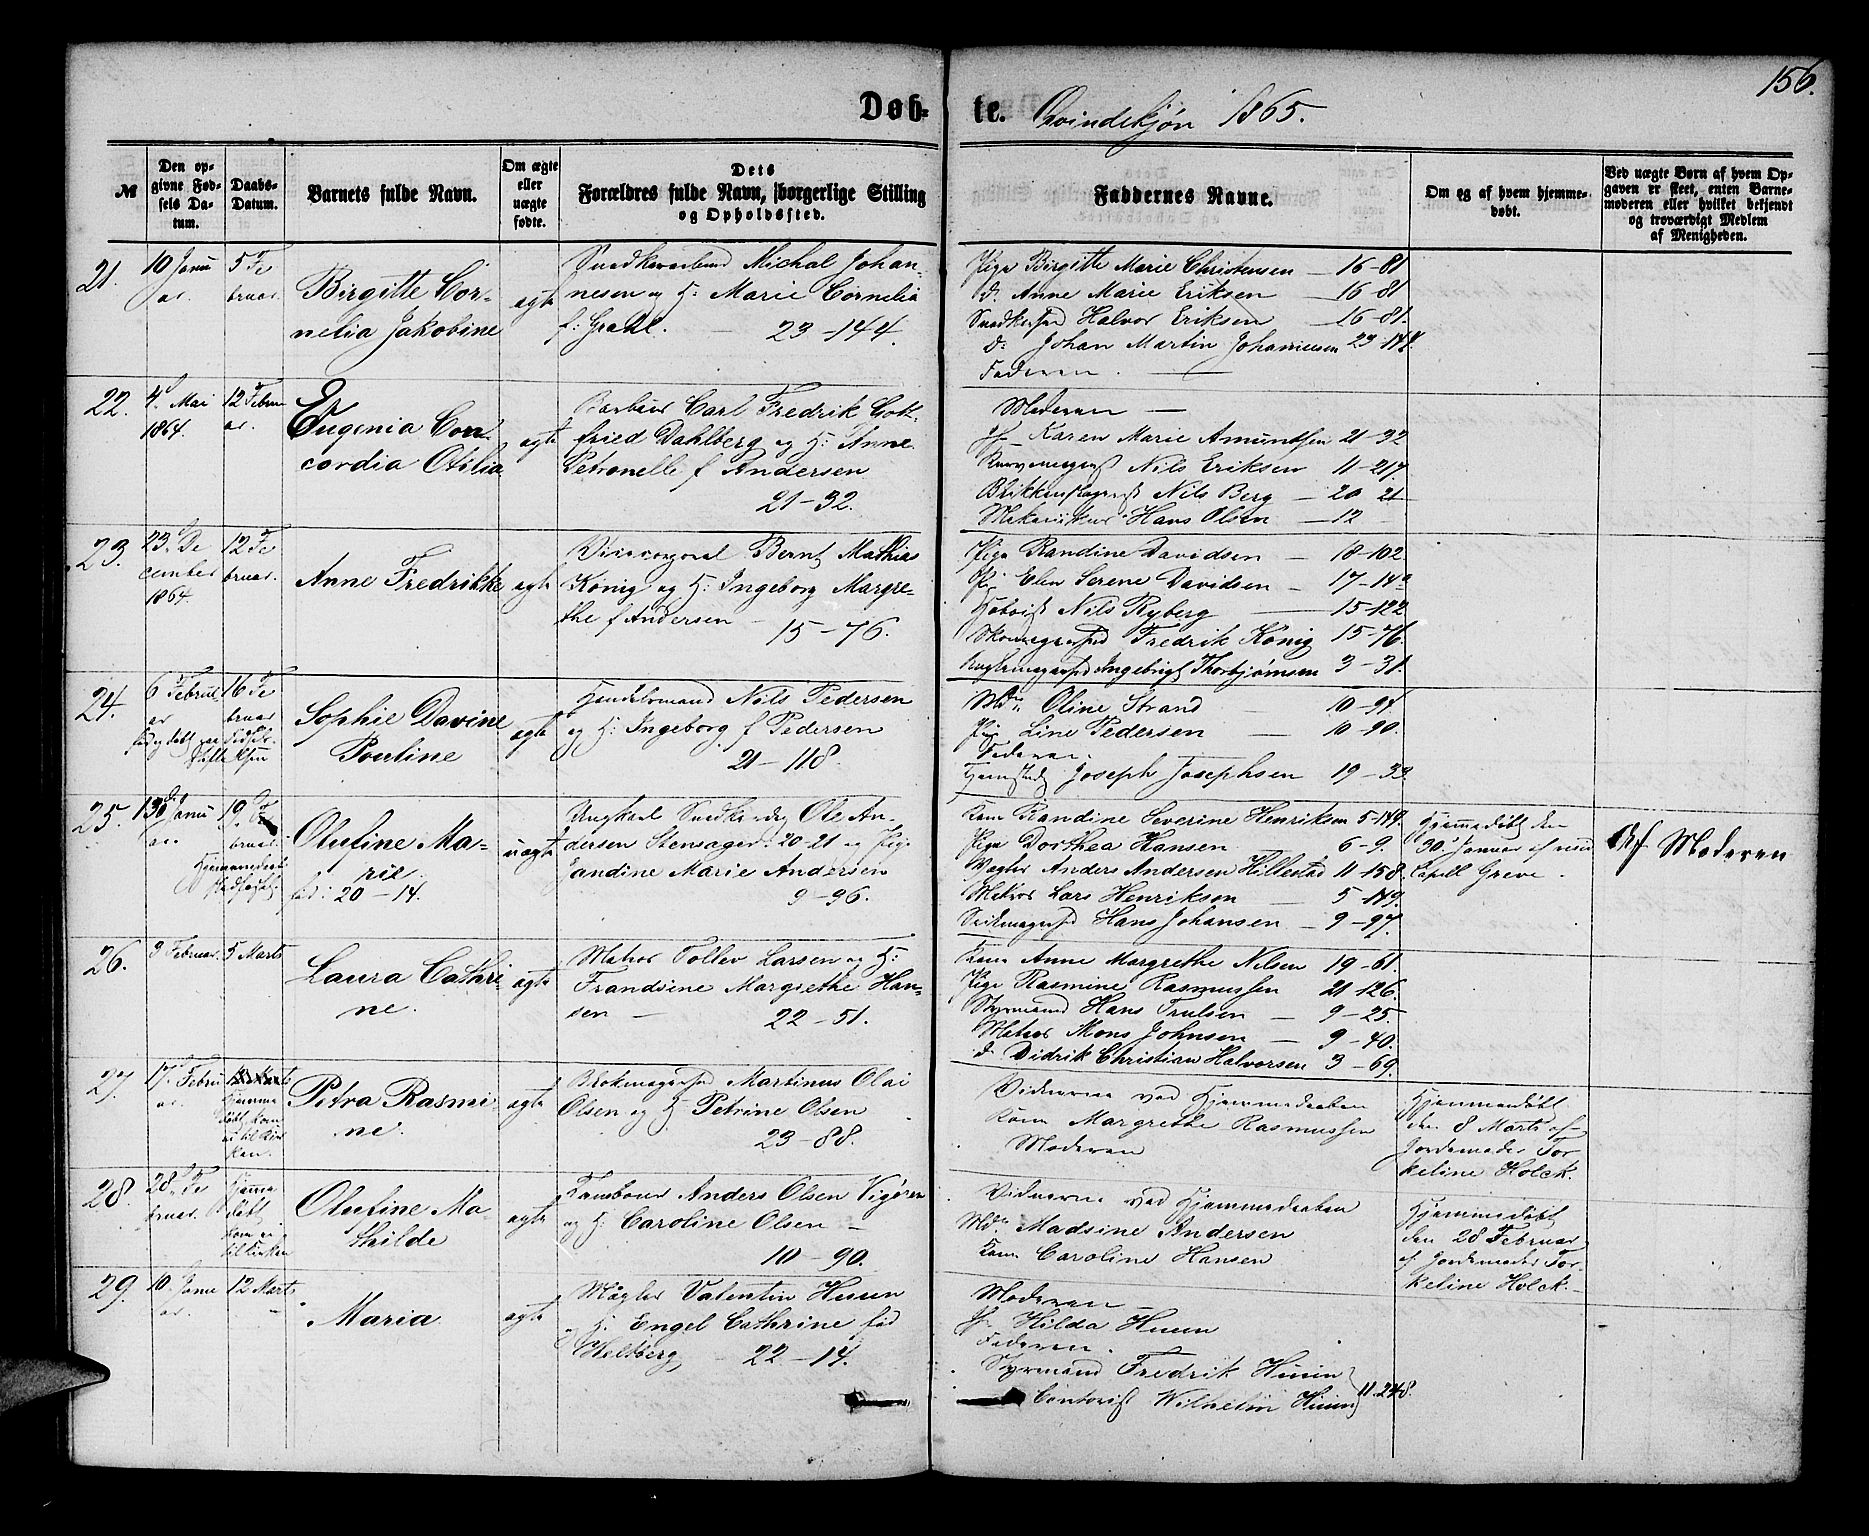 156.
Døb- te. Qvindekjøn 1865.
№
Den opgivne Fødsels Datum.
Daabs-Datum.
Barnets fulde Navn.
Om ægte eller uægte fødte.
Dets Forældres fulde Navn, borgerlige Stilling og Opholdssted.
Faddernes Navne.
Om og af hvem hjemmedøbt.
Ved uægte Børn af hvem Opgaven er skeet, enten Barnemoderen eller hvilket bekjendt og troværdigt Medlem af Menigheden.
21.
10 Janu
ar.
5 Fe
bruar.
Birgitte Cor-
nelia Jakobine
ægte
Michal Johan-
nesen og H: Marie Cornelia
f: Grahl. 23-144.
Pige Birgitte Marie Christensen — 16-81
d. Anne Marie Eriksen — 16-81
Halvor Eriksen — 16-81.
d: Johan Martin Johannesen 23-144.
Faderen.
22.
4 Mai
1864.
12 Febru
ar.
Eugenia Con-
cordia Otilia
ægte
Carl Fredrik Got-
fried Dahlberg og H: Anne
Petronelle f Andersen
21-32.
Moderen —
Karen Marie Amundsen 21-32
Nils Eriksen 11-217.
Nils Berg — 20 21
Hans Olsen — 12
23.
23. De
cember
1864.
12 Fe
bruar.
Anne Fredrikke
ægte
Bernt Mathias
König og H: Ingeborg Margre-
the f Andersen — 15-76.
Pige Randine Davidsen — 18-102
Elen Serene Davidsen — 17-14
Nils Ryberg — 15-122
Fredrik König 15-76
Ingebrigt Thorbjørnsen 3-31.
24.
6 Febru
ar
16 Fe
bruar
Stiftelsen
Sophie Davine
Pouline
ægte
Handelsmand Nils Pedersen
og H: Ingeborg f Pedersen
21-118.
Oline Strand — 10-94.
Line Pedersen — 10-90.
Faderen.
Joseph Josephsen 19-33
25.
Janu
ar
19. Fe
bruar
Hjemmedaab
Olufine Ma-
rie.
fød: 20-14.
uægte
Ungkarl Ole An-
dersen Stensager: 20-21 og Pige
Jandine Marie Andersen
9-96.
Kone Randine Severine Henriksen 5-149.
Pige Dorthea Hansen — 6-9.
Anders Andersen Hillestad 11-158.
Matros Lars Henriksen — 5-149.
Hans Johansen — 9-97.
Hjemmedøbt den
30. Januar af resid
Capell Greve.
Af Moderen
26.
3 Februar.
5 Marts
Laura Cathri-
ne.
ægte
Matros Tollev Larsen og H:
Frandsine Margrethe Han-
sen — 22-51.
Kone Anne Margrethe Nilsen 19-61.
Pige Rasmine Rasmussen 21-126.
Styrmand Hans Trulsen — 9-25.
Matros Mons Johnsen — 9-40.
d. Didrik Christian Halvorsen 3-69.
27.
17. Febru
ar.
Hjemme
døbt kom
ei til Kir
ken.
Petra Rasmi-
ne.
ægte
Martinus Olai
Olsen og H: Petrine Olsen
23-88.
Vidnerne ved Hjemmedaaben
Kone Margrethe Rasmussen
Moderen
Hjemmedøbt
den 8 Marts af
Jordemoder Tor
keline Holck.
28.
28. Fe
bruar.
Hjemme
døbt
kom ei
til Kirken
Olufine Ma-
thilde
ægte
Tambour Anders Olsen Vigøren
og H: Caroline Olsen —
10-90.
Vidnerne ved Hjemmedaaben
Madsine Andersen
Kone Caroline Hansen
Hjemmedøbt
den 28 Februar
af Jordemoder Tor
keline Holck.
29.
10. Janu
ar.
12 Marts
Maria
ægte
Mægler Valentin
H: Engel Cathrine fød
Heltberg 22-14.
Moderen —
Hilda
Faderen.
Styrmand Fredrik
Contorist Wilhelm 11-248.